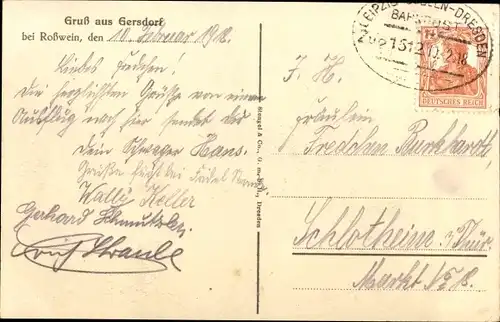 Gruß aus Gersdorf
bei Roßwein, den 10. Februar 1918.
Liebes Fredchen!
Die herzlichsten Grüße von einem
Ausflug nach hier sendet dir
Dein Schwager Hans.
Grüße
Wally Keller
Gerhard Schmutzler.
Erich Straube
Stengel & Co., G. m. b. H., Dresden
LEIPZIG-DÖBELN-DRESDEN
BAHNPOST
DEUTSCHES REICH
Fräulein
Fredchen Burkhardt,
Schlotheim i/Thür.
Markt No 8.